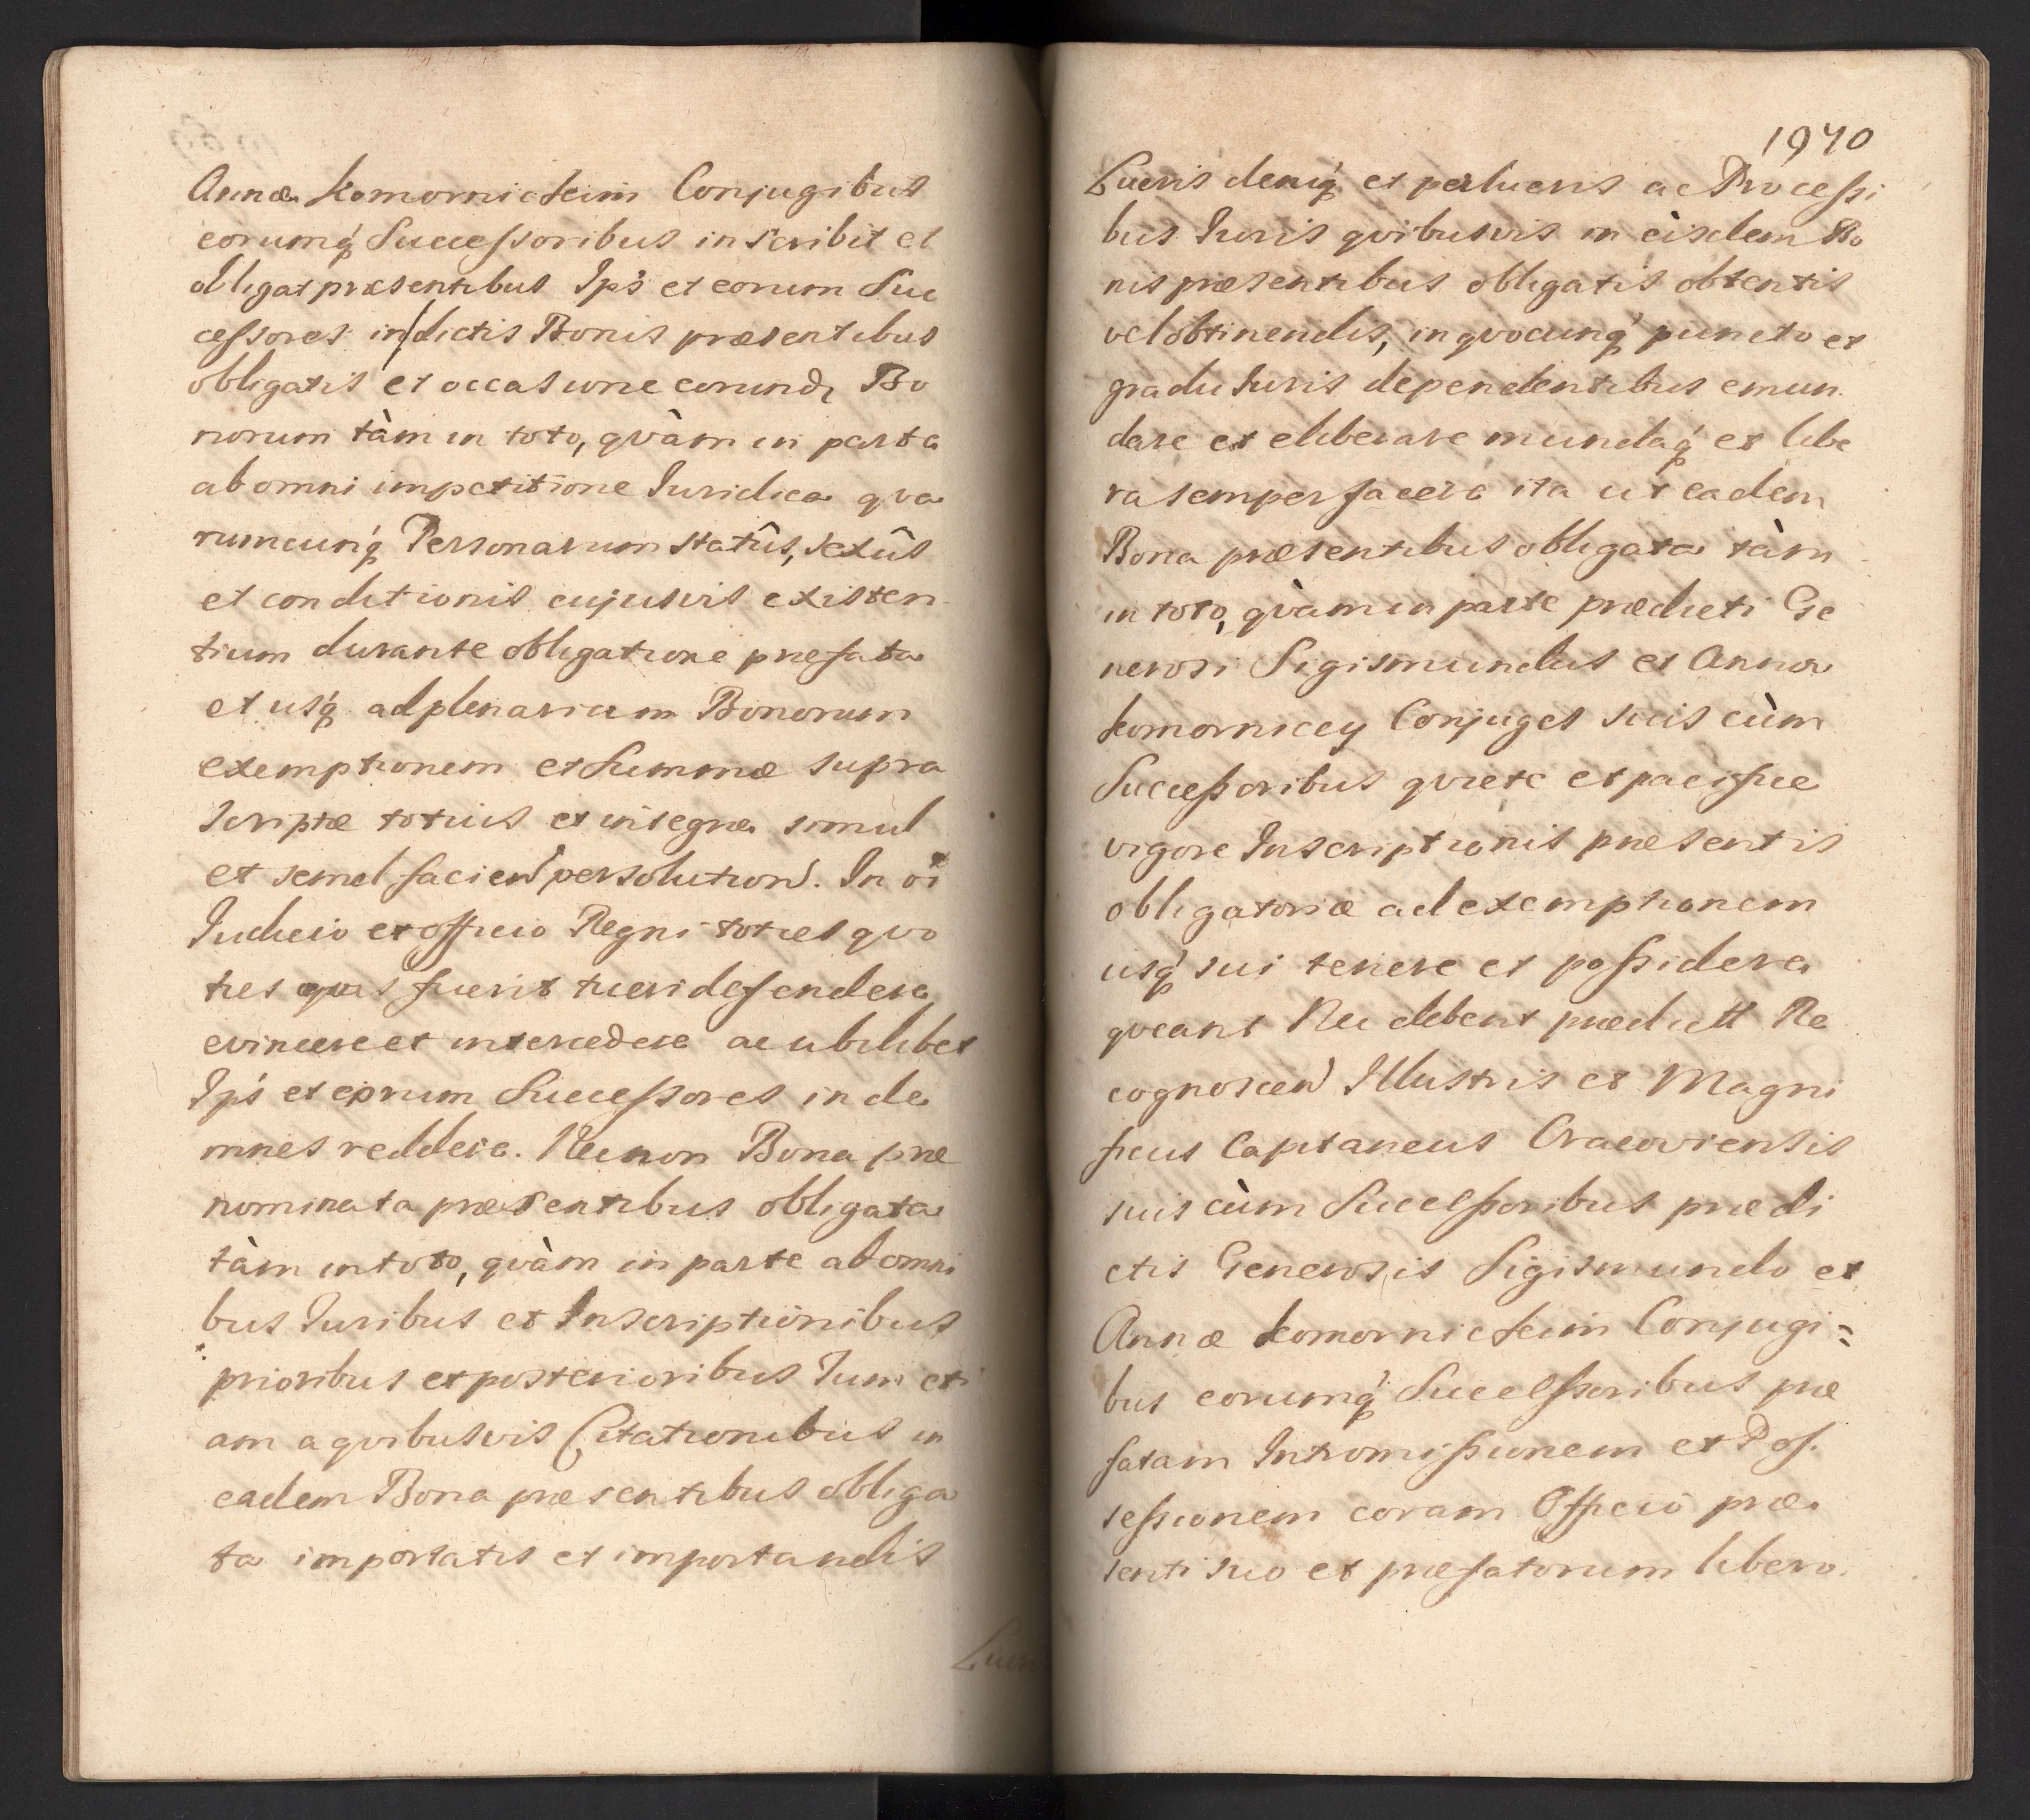 Annæ Komornickim Conjugibus
eorumq́ Successoribus inscribit et
obligat præsentibus Ips̃ et eorum Suc
cessores in dictis Bonis præsentibus
obligatis et occasione eorund. Bo
norum tàm in toto, qvàm in parte
ab omni impetitione Iuridica qva
rumcunq́ Personarum statûs, sexûs
et conditionis cujusvis existen
tium durante obligatione præfata
et usq́ ad plenariam Bonorum
exemptionem et Summæ supra
scriptæ totius et integræ simul
et semel faciend persolution. In oi
Iudicio et officio Regni toties qvo
ties opus fuerit tueri defendere
evincere et intercedere ac ubilibet
Ips̃ et eorum Successores inde
mnes reddere. Necnon Bona præ
nominata præsentibus obligata
tàm in toto, qvàm in parte ab omni
bus Iuribus et Inscriptionibus
prioribus et posterioribus Tum eti
am a qvibusvis Citationibus in
eadem Bona præsentibus obliga
ta importatis et importandis
1970
Lucris deniq́ et perlucris ac Processi
bus Iuris qvibusvis in èisdem Bo
nis præsentibus obligatis obtentis
vel obtinendis, in qvocunq́ puncto et
gradu Iuris dependentibus emun
dare et eliberare mundaq́ et libe
ra semper facere ita ut eadem
Bona præsentibus obligata tàm
in toto, qvàm in parte prædicti Ge
nerosi Sigismundus et Anna
Komornicey Conjuges suis cùm
Successoribus qviete et pacifice
vigore Inscriptionis præsentis
obligatoriæ ad exemptionem
usq́ sui tenere et possidere
qveant Nec debent prædictt Re
cognoscen Illustris et Magni
ficus Capitaneus Cracoviensis
suis cùm Successoribus prædi
ctis Generosis Sigismundo et
Annæ Komornickim Conjugi=
bus eorumq́ Successoribus præ
fatam Intromissionem et Pos
sessionem coram Officio præ
senti suo et præfatorum libero